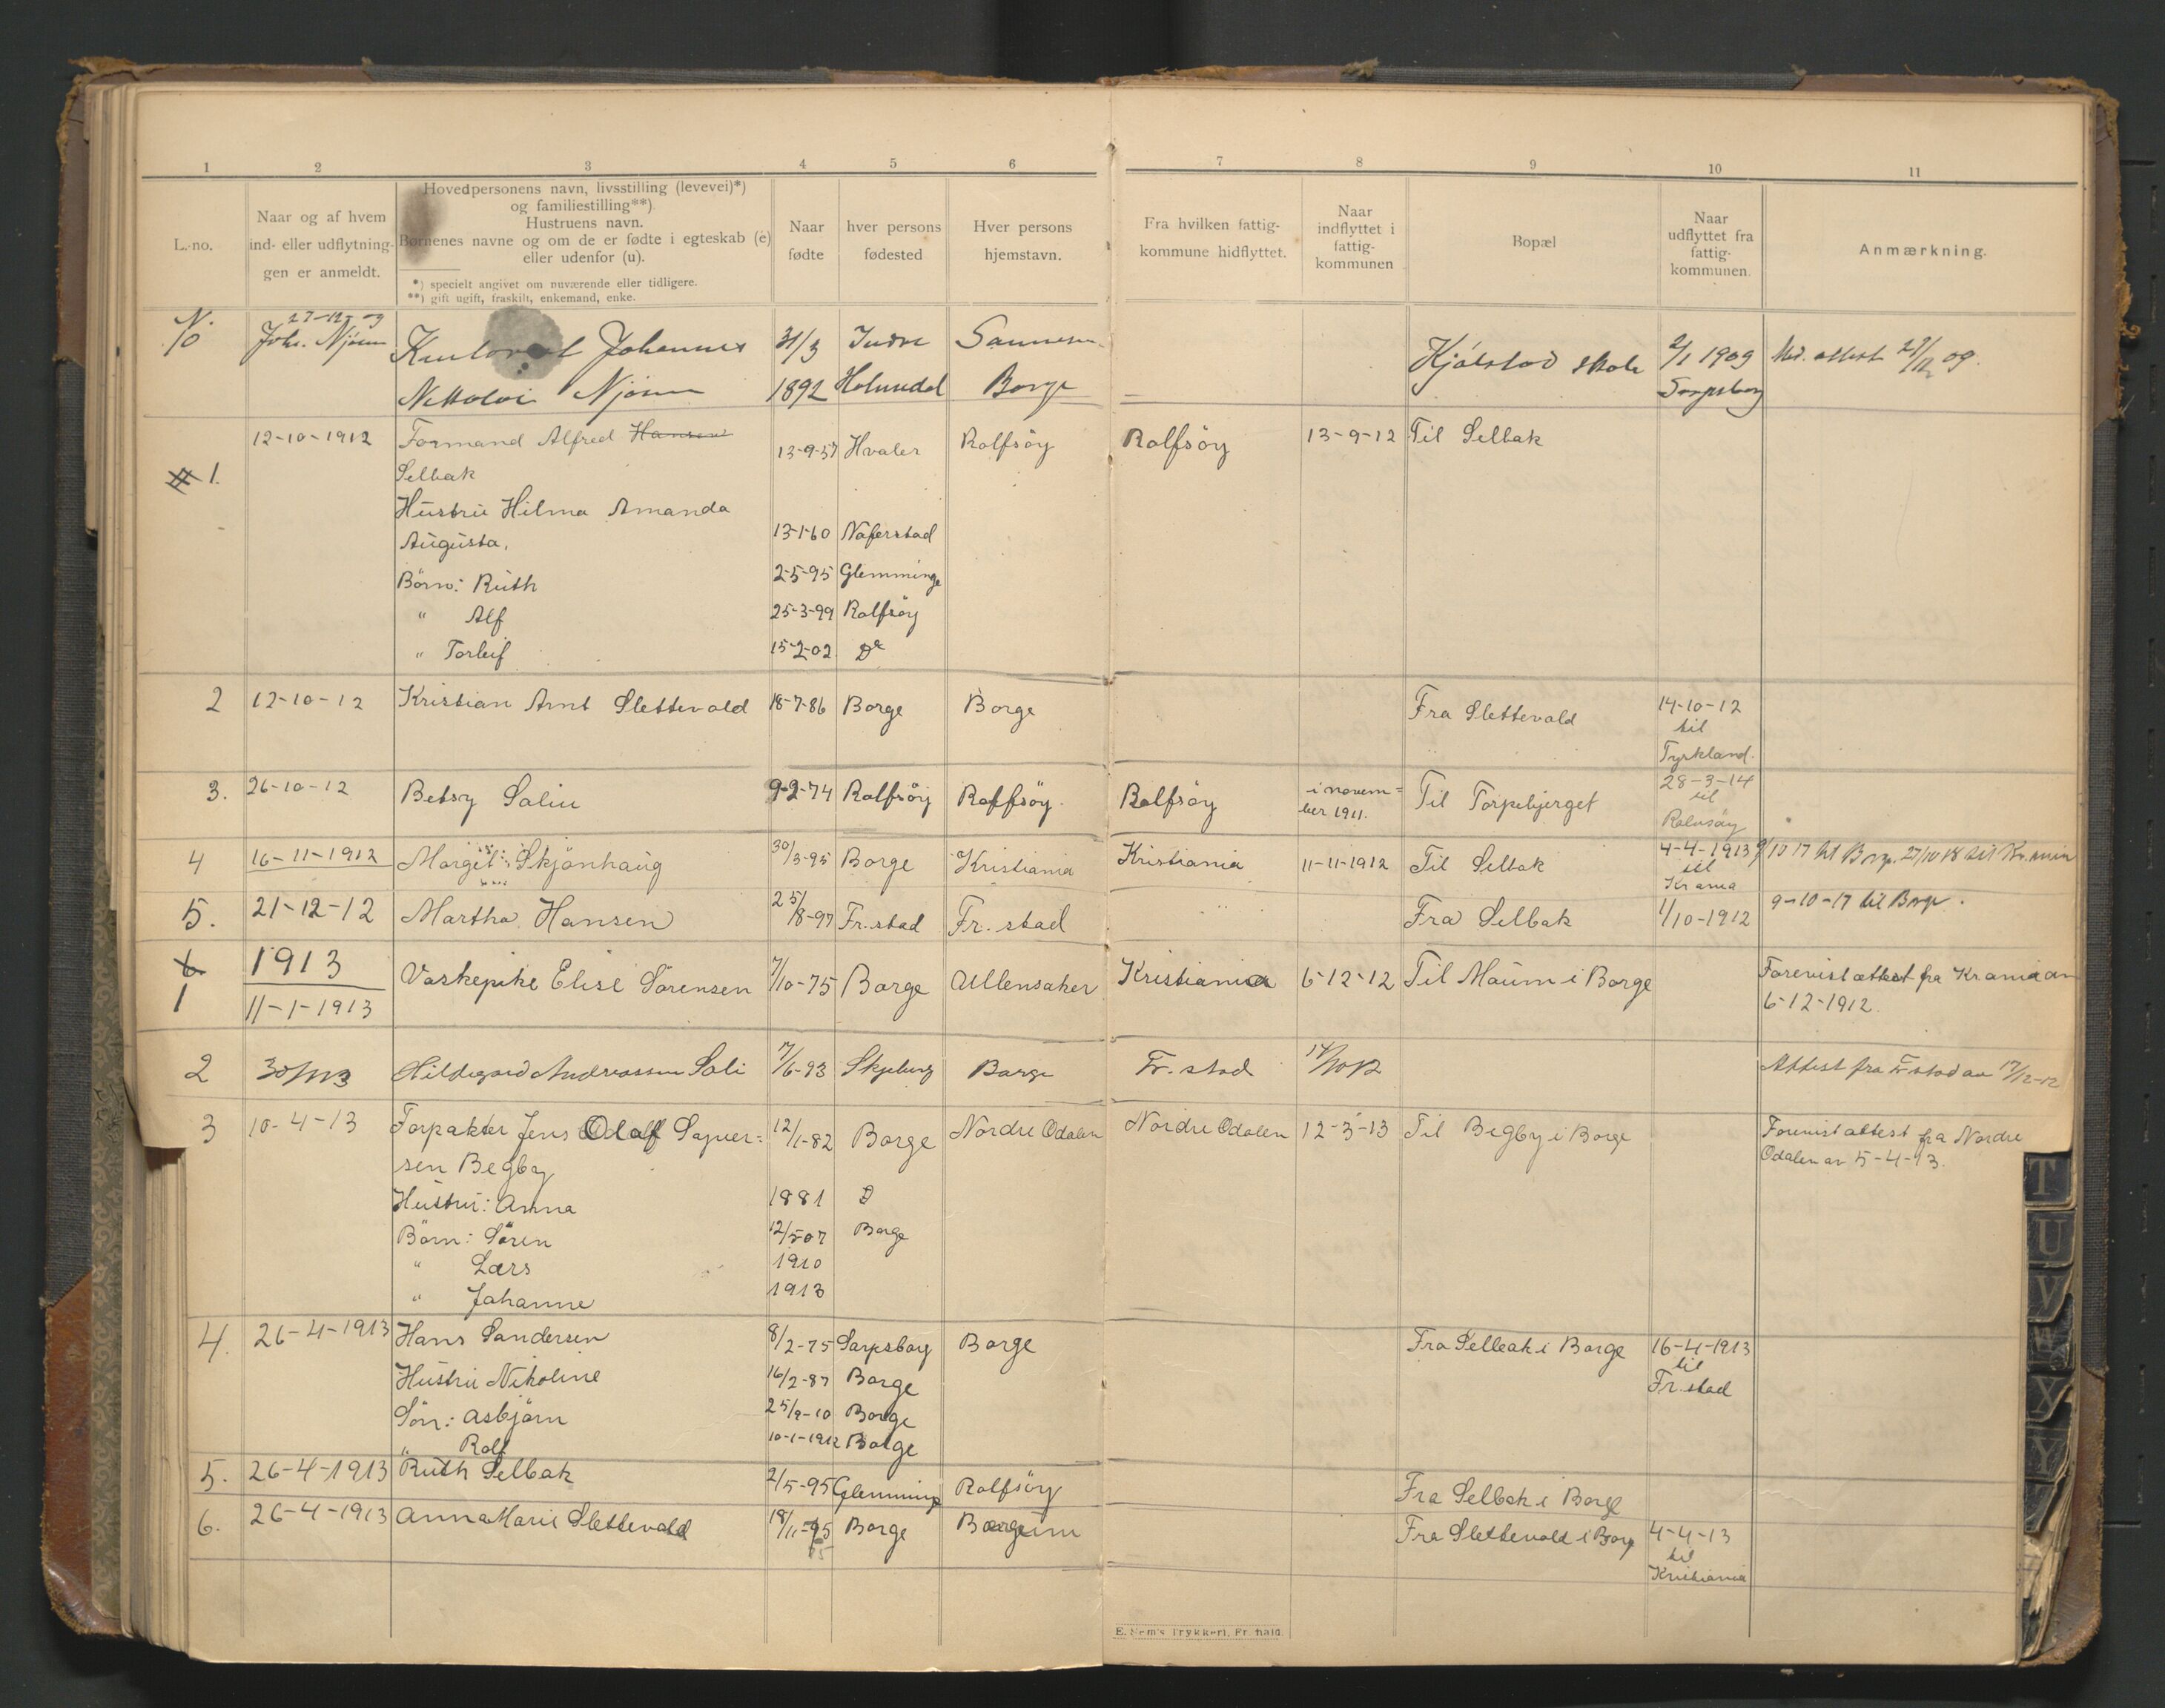 1 2 3 4 5 6 7 8 9 10 11
L.-no.
Naar og af hvem
ind- eller udflytnin-
gen er anmeldt.
Hovedpersonens navn, livsstilling (levevei)*)
og familiestilling**)
Hustruens navn.
Børnenes navne og om de er fødte i egteskab (e)
eller udenfor (u).
*) specielt angivet om nuværende eller tidligere.
**) gift ugift, fraskilt, enkemand, enke.
Naar
fødte
hver persons
fødested
Hver persons
hjemstavn.
Fra hvilken fattig-
kommune hidflyttet.
Naar
indflyttet i
fattig-
kommunen
Bopæl
Naar
udflyttet fra
fattig-
kommunen.
Anmærkning.
27-12-09
Johs. Njøsen Johannes 31/3 Indre 2/1 1909 Md. attest 29/12 09.
Njøsen 1892 Holmedal Borge Kjølstad skole Sarpsborg
1. 12-10-1912 Formand Alfred Hansen 13-9-57 Hvaler Rolfsöy Rolfsöy 13-9-12 Til Selbak
Selbak
Hustru Hilma Amanda
Augusta, 13-1-60 Näferstad
Börn: Ruth 2-5-95 Glemminge
" Alf 25-3-99 Rolfsöy
" Torleif 15-2-02 Do
2 12-10-12 Kristian Arnt Slettevold 18-7-86 Borge Borge Fra Slettevold 14-10-12
til
Tyrkland.
3. 26-10-12 Betsy Salin 9-2-74 Rolfsöy Rolfsöy. Rolfsöy i novem=
ber 1911. Til Torpebjerget 28-3-14
til
Rolvsöy
4 16-11-1912 Margit Skjönhaug 30/3-95 Borge Kristiania Kristiania 11-11-1912 Til Selbak 4-4-1913
til
Krania
9/10 17 til Borge. 27/10 18 til Kr.ania
5. 21-12-12 Martha Hansen 25/8-97 Fr.stad Fr. stad Fra Selbak 1/10-1912 9-10-17 til Borge.
6 1913
1 11-1-1913 Vaskepike Elise Sörensen 7/10-75 Borge Ullensaker Kristiania 6-12-12 Til Moum i Borge Forevist attest fra Krania av
6-12-1912.
2 30/1 13 Hildegard Andreassen Soli 7/6-93 Skjeberg Borge Fr. stad Attest fra Fr stad av 17/12-12
3 10-4-13 Forpakter Jens Olaf 12/1-82 Borge Nordre Odalen Nordre Odalen 12-3-13 Til Begby i Borge Forevist attest fra Nordre
sen Begby Odalen av 5-4-13.
Hustru: Anna 1881 D
Börn: Sören 12/5 07 Borge
" Lars 1910
" Johanne 1913
4. 26-4-1913 Hans Sandersen 8/2-75 Sarpsborg Borge Fra Selbak i Borge 16-4-1913
til
Fr. stad
Hustru Nikoline 16/2-87 Borge
Sön: Asbjörn 25/9-10 Borge
" Rolf 10-1-1912 Borge
5. 26-4-1913 Ruth Selbak 2/5-95 Glemminge Rolfsöy Fra Selbak i Borge
6. 26-4-1913 Anna Marie Slettevold 18/11-95 Borge Fra Slettevold i Borge 4-4-13
til
Kristiania
E. Sem's Trykkeri, Fr.hald.
T
U
V
W
X
Y